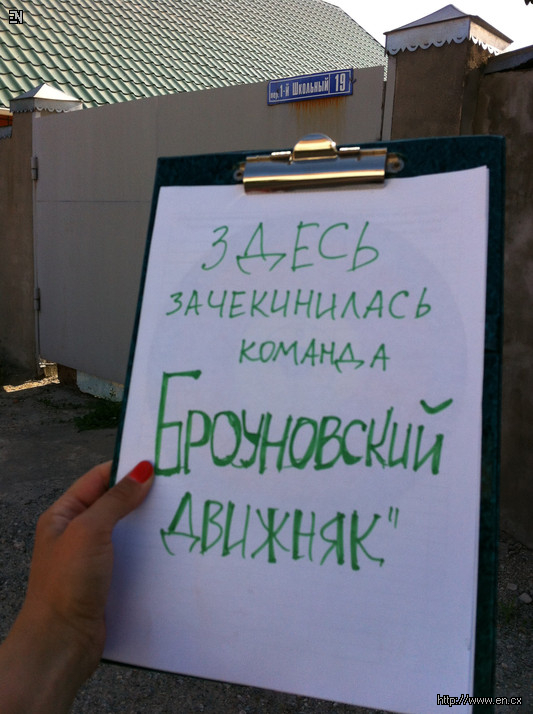 EN
пер. 1-й Школьный 19
ЗДЕСЬ
ЗАЧЕКИНИЛАСЬ
КОМАНДА
БРОУНОВСКИЙ
ДВИЖНЯК"
http://www.en.cx